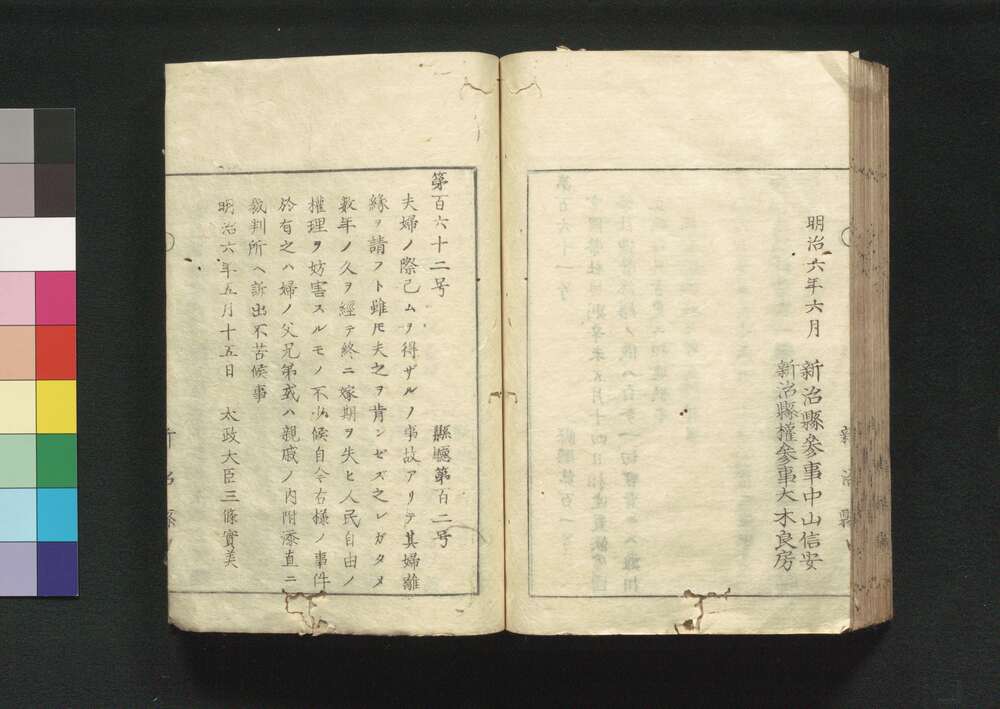 明治六年六月
新治縣參事中山信安
新治縣權參事大木良房
第百六十二号
縣廳第百二号
夫婦ノ際已ムヲ得ザルノ事故アリテ其婦離
緣ヲ請フト雖𪜈夫之ヲ肯ンゼズ之レガタメ
數年ノ久ヲ經テ終ニ嫁期ヲ失ヒ人民自由ノ
權理ヲ妨害スルモノ不少候自今右樣ノ事件
於有之ハ婦ノ父兄弟或ハ親戚ノ内附添直ニ
裁判所ヘ訴出不苦候事
明治六年五月十五日　太政大臣三條實美